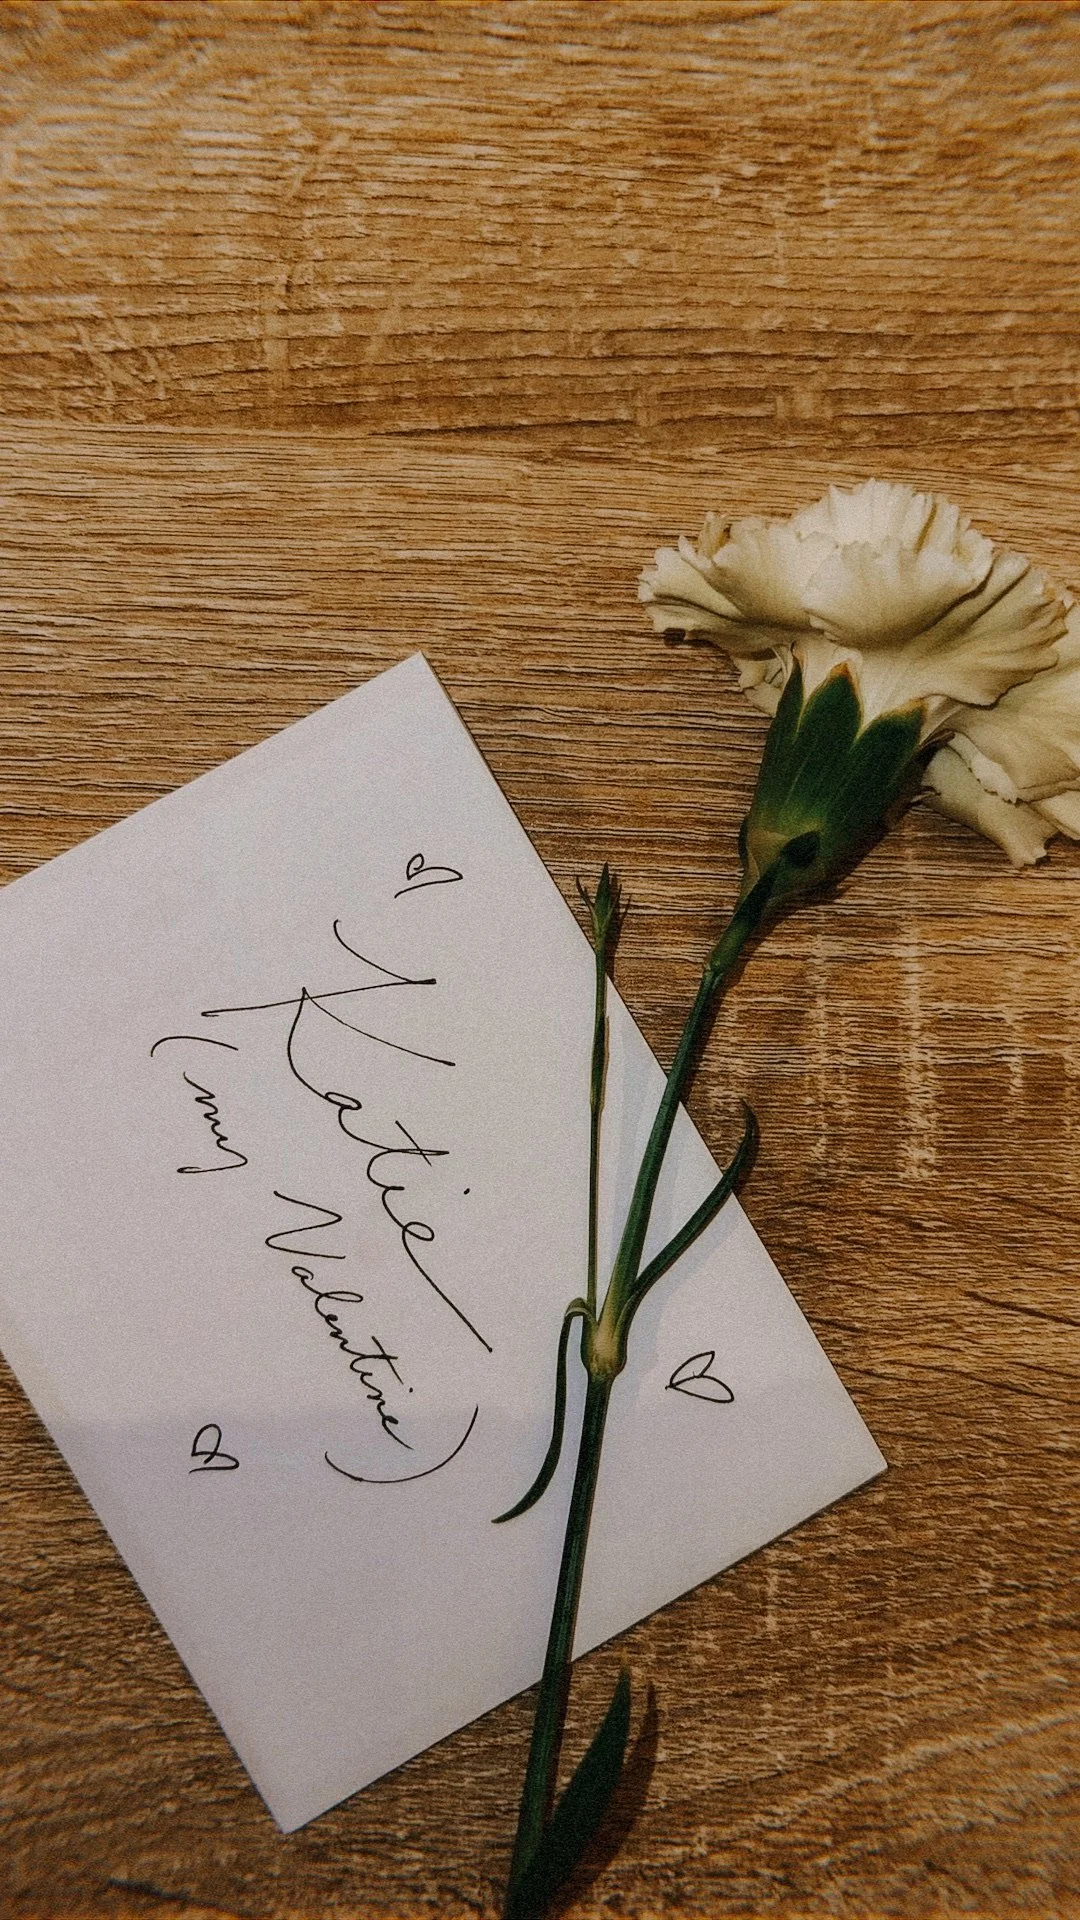 Katie
(my Valentine)